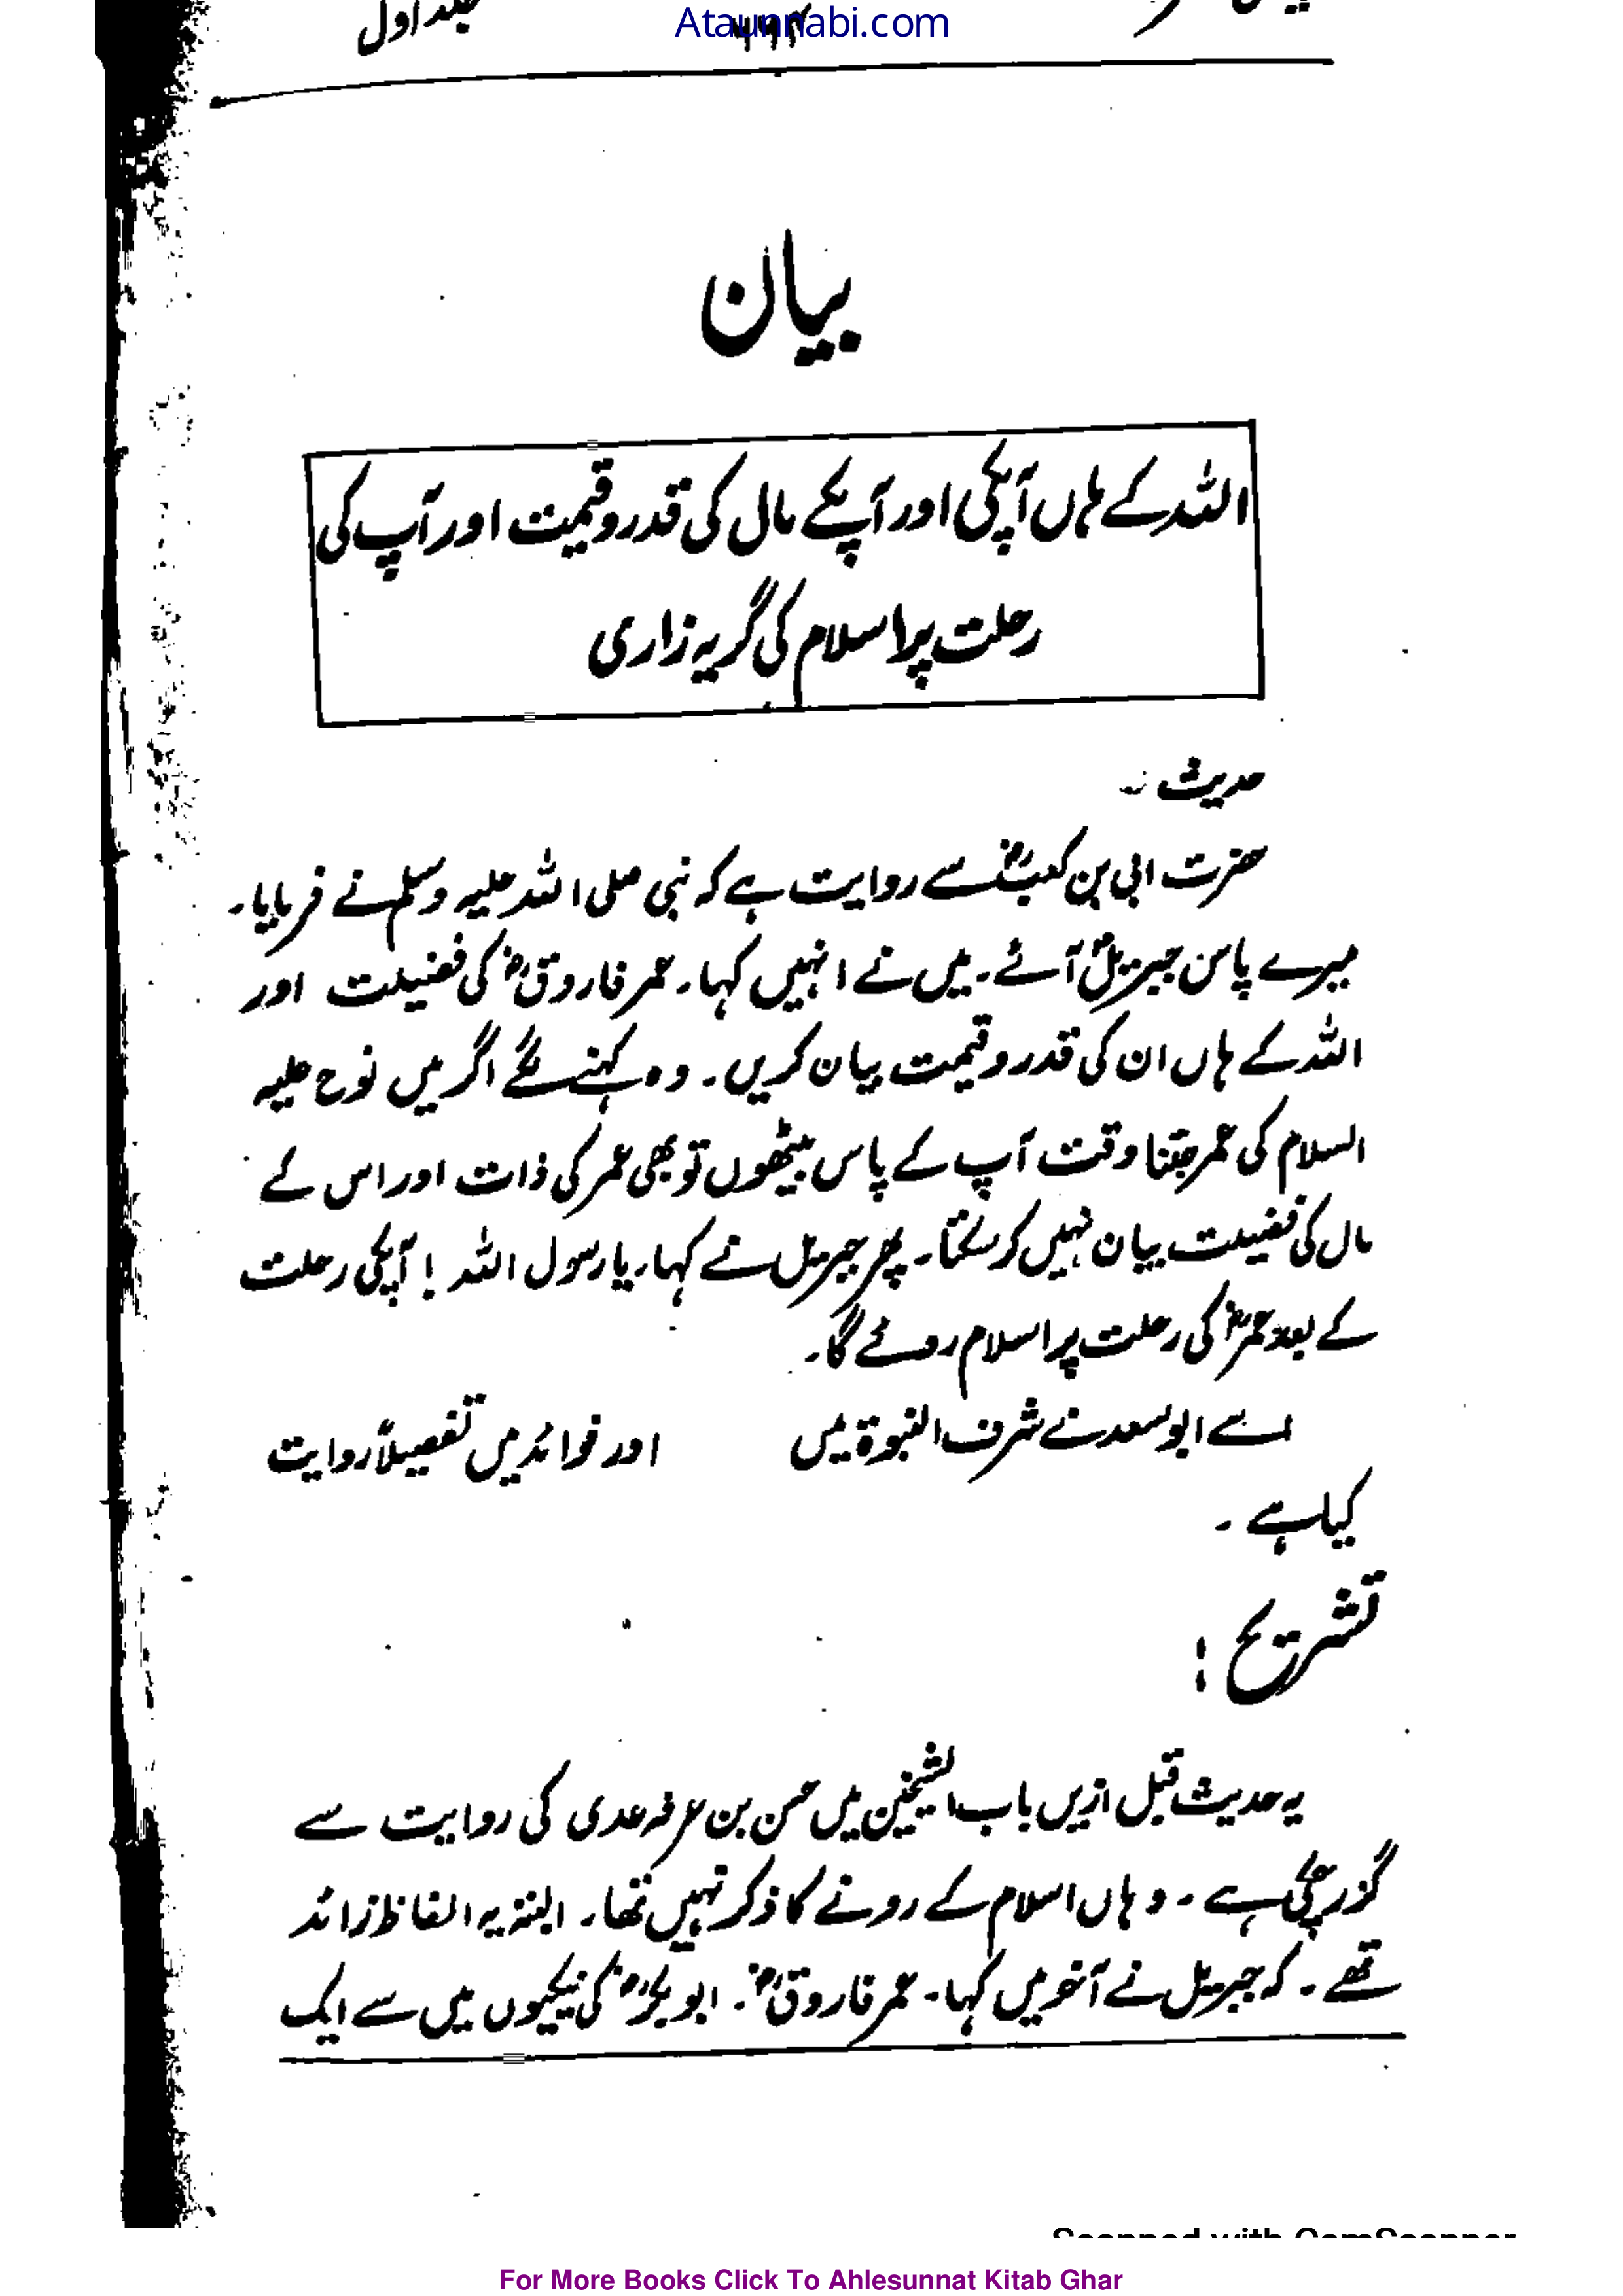 Ataunnabi.com
جلد اول
بیان
اللہ کے ہاں آپکی اور آپکے مال کی قدر و قیمت اور آپ کی
رحلت پر اسلام کی گریہ زاری
حدیث
حضرت ابی بن کعبؓ سے روایت ہے کہ نبی صلی اللہ علیہ وسلم نے فرمایا۔
میرے پاس جبریلؑ آئے۔ میں نے انہیں کہا۔ عمر فاروقؓ کی فضیلت اور
اللہ کے ہاں ان کی قدر و قیمت بیان کریں۔ وہ کہنے لگے اگر میں نوح علیہ
السلام کی عمر جتنا وقت آپ کے پاس بیٹھوں تو بھی عمر کی ذات اور اس کے
مال کی فضیلت بیان نہیں کر سکتا۔ پھر جبریل نے کہا۔ یا رسول اللہ ! آپکی رحلت
کے بعد عمرؓ کی رحلت پر اسلام روئے گا۔
اسے ابوسعد نے شرف النبوۃ میں اور فوائد میں تفصیلاً روایت
کیا ہے ۔
تشریح :
یہ حدیث قبل ازیں باب الشیخین میں حسن بن عرفہ عدی کی روایت سے
گزر چکی ہے ۔ وہاں اسلام کے رونے کا ذکر نہیں تھا۔ البتہ یہ الفاظ زائد
تھے ۔ کہ جبریل نے آخر میں کہا۔ عمر فاروقؓ۔ ابوبکرؓ کی نیکیوں میں سے ایک
Scanned with CamScanner
For More Books Click To Ahlesunnat Kitab Ghar